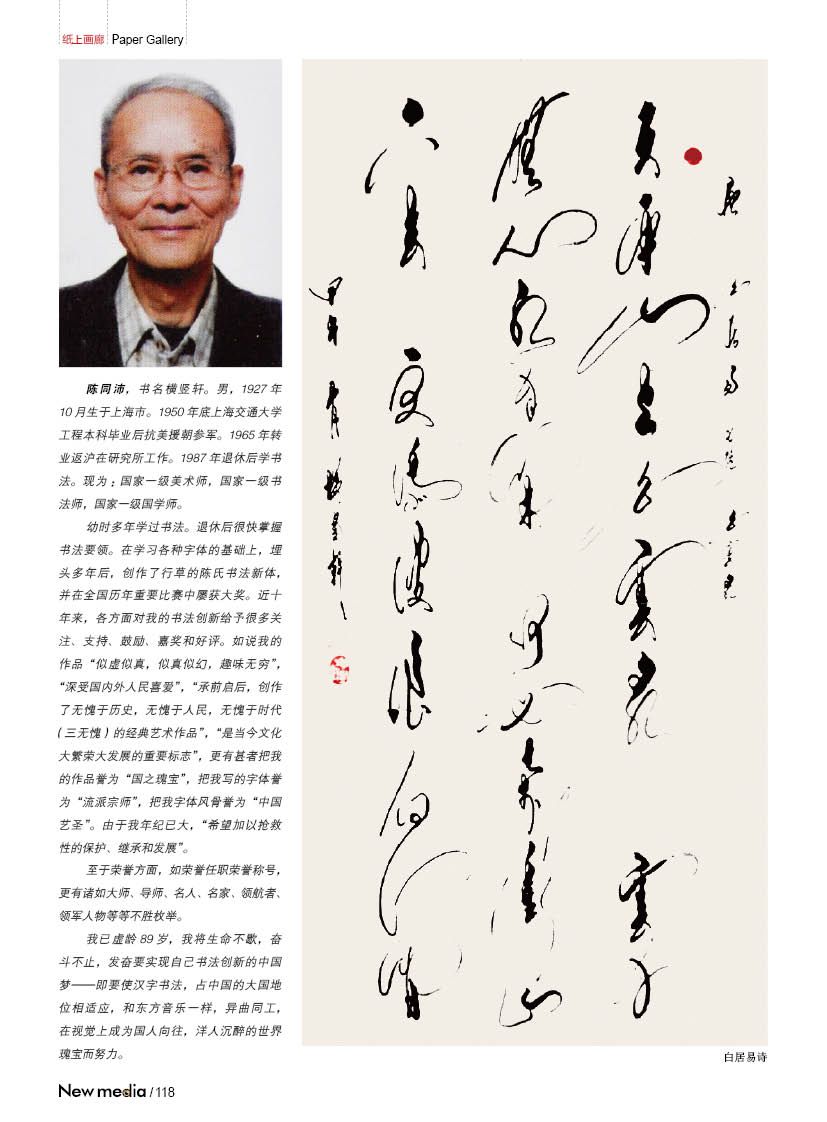 纸上画廊 Paper Gallery
陈同沛，书名横竖轩。男，1927 年
10 月生于上海市。1950 年底上海交通大学
工程本科毕业后抗美援朝参军。1965 年转
业返沪在研究所工作。1987 年退休后学书
法。现为：国家一级美术师，国家一级书
法师，国家一级国学师。
幼时多年学过书法。退休后很快掌握
书法要领。在学习各种字体的基础上，埋
头多年后，创作了行草的陈氏书法新体，
并在全国历年重要比赛中屡获大奖。近十
年来，各方面对我的书法创新给予很多关
注、支持、鼓励、嘉奖和好评。如说我的
作品“似虚似真，似真似幻，趣味无穷”，
“深受国内外人民喜爱”，“承前启后，创作
了无愧于历史，无愧于人民，无愧于时代
（三无愧）的经典艺术作品”，“是当今文化
大繁荣大发展的重要标志”，更有甚者把我
的作品誉为“国之瑰宝”，把我写的字体誉
为“流派宗师”，把我字体风骨誉为“中国
艺圣”。由于我年纪已大，“希望加以抢救
性的保护、继承和发展”。
至于荣誉方面，如荣誉任职荣誉称号，
更有诸如大师、导师、名人、名家、领航者、
领军人物等等不胜枚举。
我已虚龄 89 岁，我将生命不歇，奋
斗不止，发奋要实现自己书法创新的中国
梦——即要使汉字书法，占中国的大国地
位相适应，和东方音乐一样，异曲同工，
在视觉上成为国人向往，洋人沉醉的世界
瑰宝而努力。
唐 白居易 白雲泉
天平山上白雲泉 雲自
無心水自闲 何必奔衝山
下去 更添波浪向人间
甲午
白居易诗
New media / 118